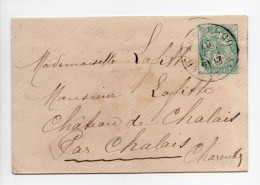 Mademoiselle Lafitte
Monsieur Lafitte
Château de Chalais
Par Chalais
Charente